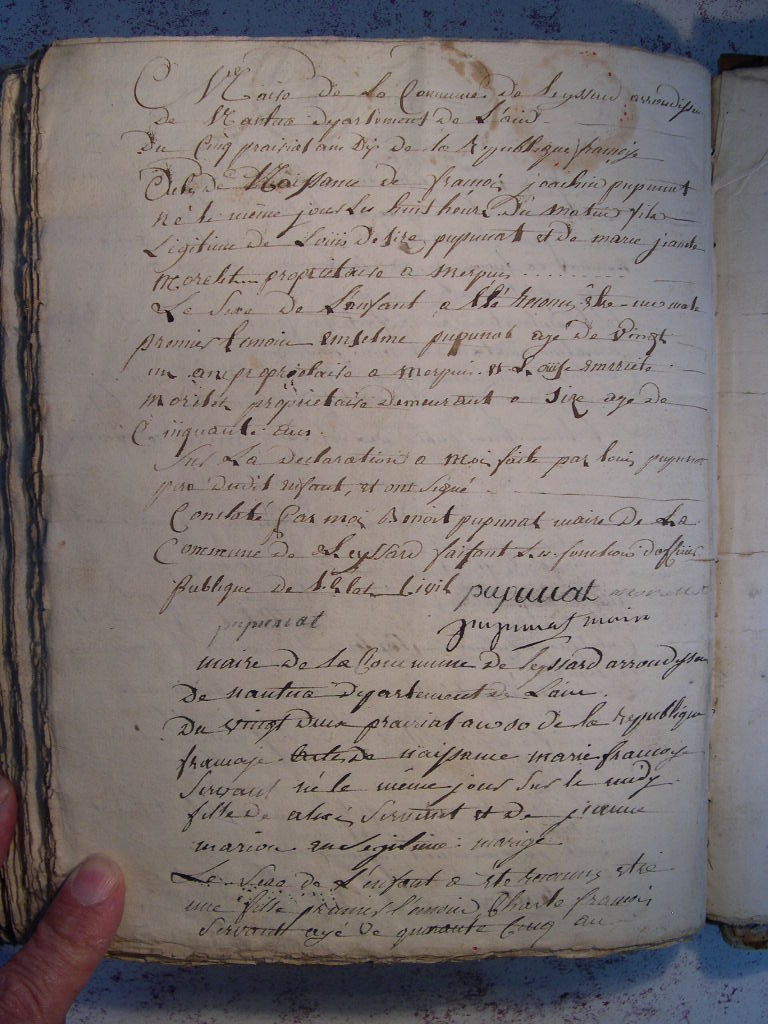 Maire de la Commune de Leyssard arrondisse
de Nantua departement de L'ain
Du Cinq prairial an Dix de la Republique francoise
Acte de Naissance de francoi joachin pupunat
né le même jour les huit heure Du matin fils
Légitime de Loüis de sire pupunat et de marie jeanete
morelet proprietaire a merpuis
Le Sexe de L'enfant a Eté reconnu être un male
premier temoin enselme pupunat agé de vingt
un an proprietaire a merpuis et
morelet proprietaire demeurant a Size agé de
Cinquante ans.
Sur La declaration a moi faite par louis pupunat
pere dudit enfant, et ont signé
Constaté par moi Benoit pupunat maire de La
Commune de Leyssard faisant les fonction d'officier
Publique de l'Etat Civil pupunat
pupunat pupunat maire
maire de la Commune de Leyssard arrondissem
De nantua departement de Lain.
Du vingt deux prairial an 10 de la republique
francoise acte de naissance marie francoise
Servant né le même jour sur le midy
fille de Servant et de jeanne
marion en legitime mariage
Le Sexe de L'enfant a ete reconnu etre
une fille premier temoin Charle francois
Servant agé de quarante Cinq an